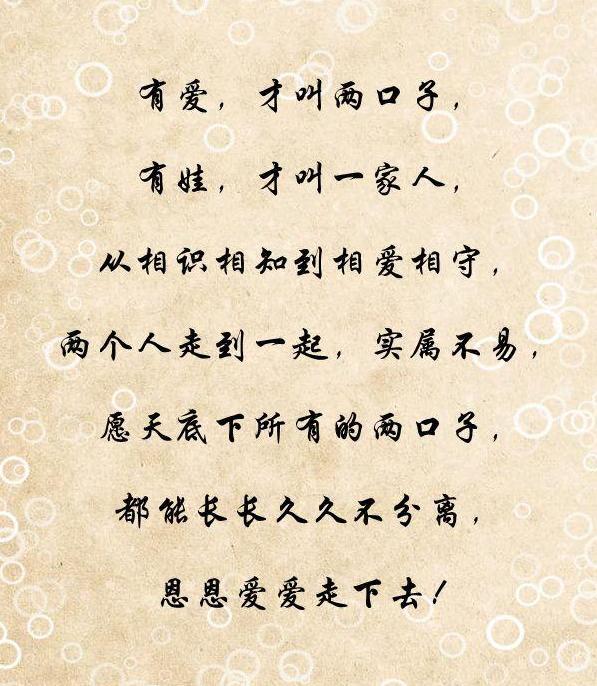 有爱，才叫两口子，
有娃，才叫一家人，
从相识相知到相爱相守，
两个人走到一起，实属不易，
愿天底下所有的两口子，
都能长长久久不分离，
恩恩爱爱走下去！